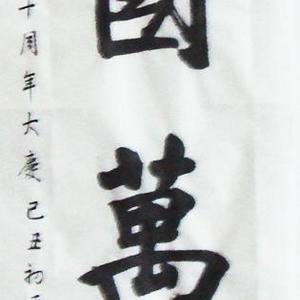 國萬
十周年大慶己丑初